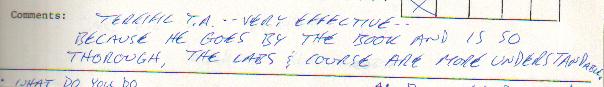 Comments: TERRIFIC T.A. -- VERY EFFECTIVE --
BECAUSE HE GOES BY THE BOOK AND IS SO
THOROUGH, THE LABS & COURSE ARE MORE UNDERSTANDABLE.
WHAT DO YOU DO